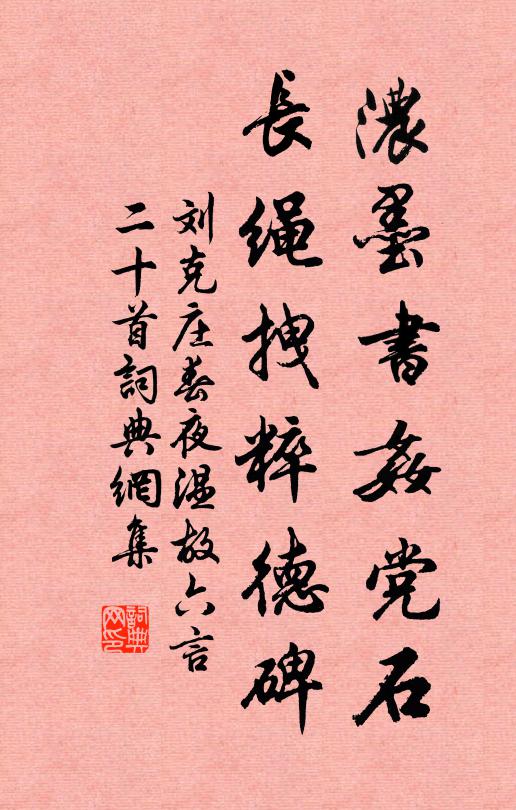 濃墨書姦党石
長绳拽粹德碑
刘克庄春夜温故六言
二十首詞典網集
詞典網印